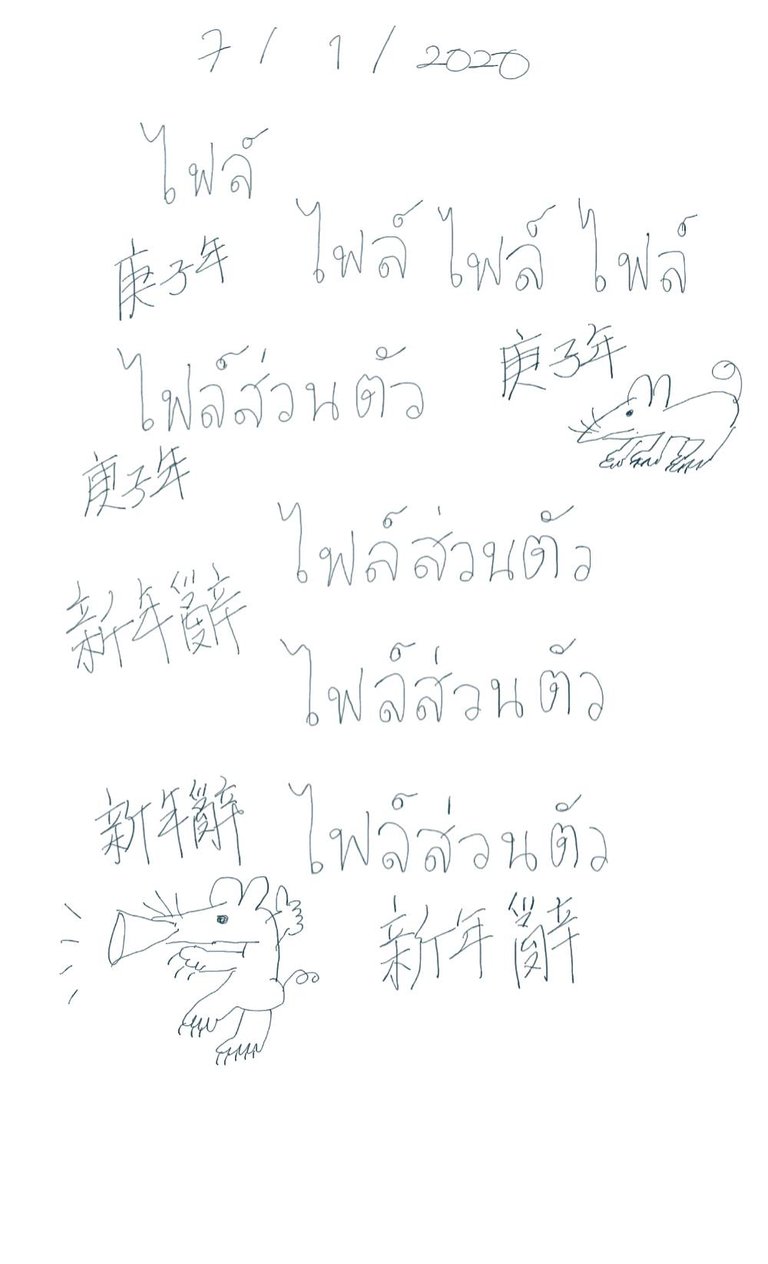 7 / 1 / 2020
ไฟล์
ไฟล์ ไฟล์ ไฟล์
庚子年
庚子年
ไฟล์ส่วนตัว
庚子年
ไฟล์ส่วนตัว
新年辭
ไฟล์ส่วนตัว
新年辭 ไฟล์ส่วนตัว
新年辭